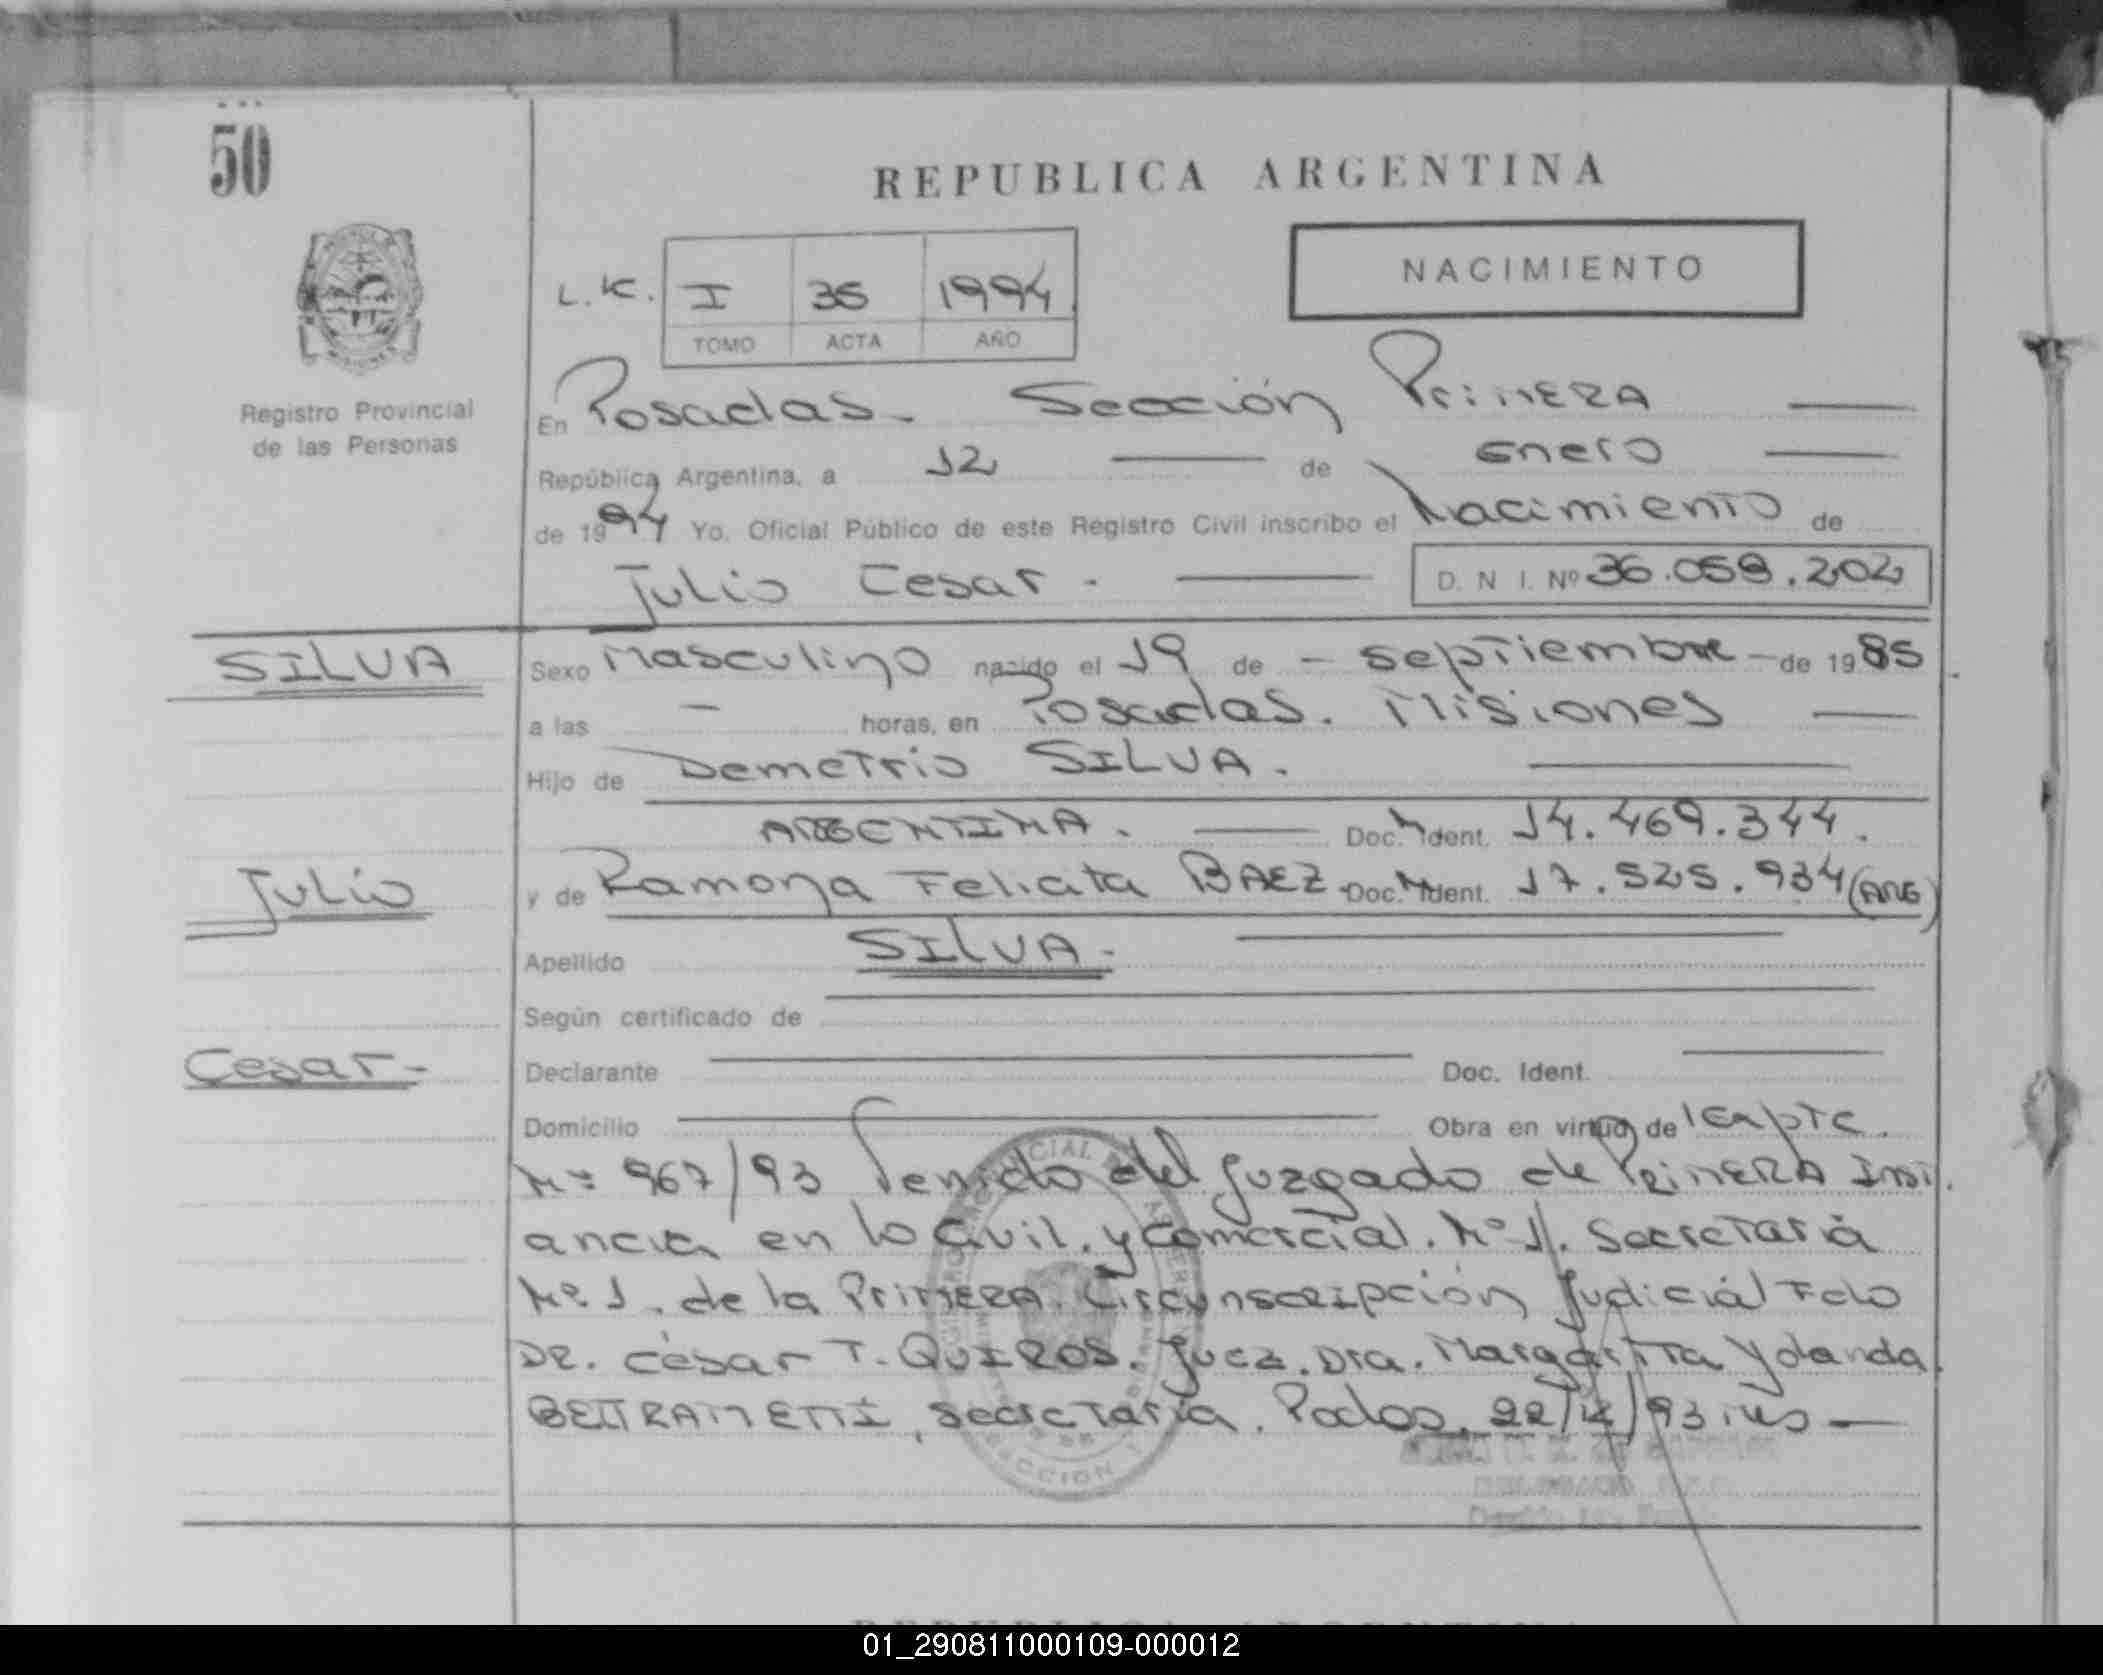 50
REPUBLICA ARGENTINA
NACIMIENTO
L.K. I 36 1994
TOMO ACTA AÑO
Registro Provincial
de las Personas
En Posadas. Sección Primera
República Argentina, a 12 de Enero
de 1994 Yo, Oficial Público de este Registro Civil inscribo el Nacimiento de
Julio Cesar. D. N. I. Nº 36.059.202
SILVA
Sexo Masculino nacido el 19 de - septiembre - de 1985
a las - horas, en Posadas. Misiones
Hijo de Demetrio SILVA.
ARGENTINA. Doc. Ident. 14.469.344.
Julio
y de Ramona Felicita BAEZ Doc. Ident. 17.525.934 (ARG)
Apellido SILVA.-
Según certificado de
Cesar-
Declarante Doc. Ident.
Domicilio Obra en virtud de Expte.
Nº 967/93 Venido del Juzgado de Primera Inst
ancia en lo Civil. y Comercial. Nº 1. Secretaria
Nº 1. de la Primera. Circunscripción Judicial Fdo
DR. César T. QUIROS. Juez. Dra. Margarita Yolanda
BELTRAMETTI, Secretaria. Pdas, 22/ /93
SECCION 1
01_290811000109-000012